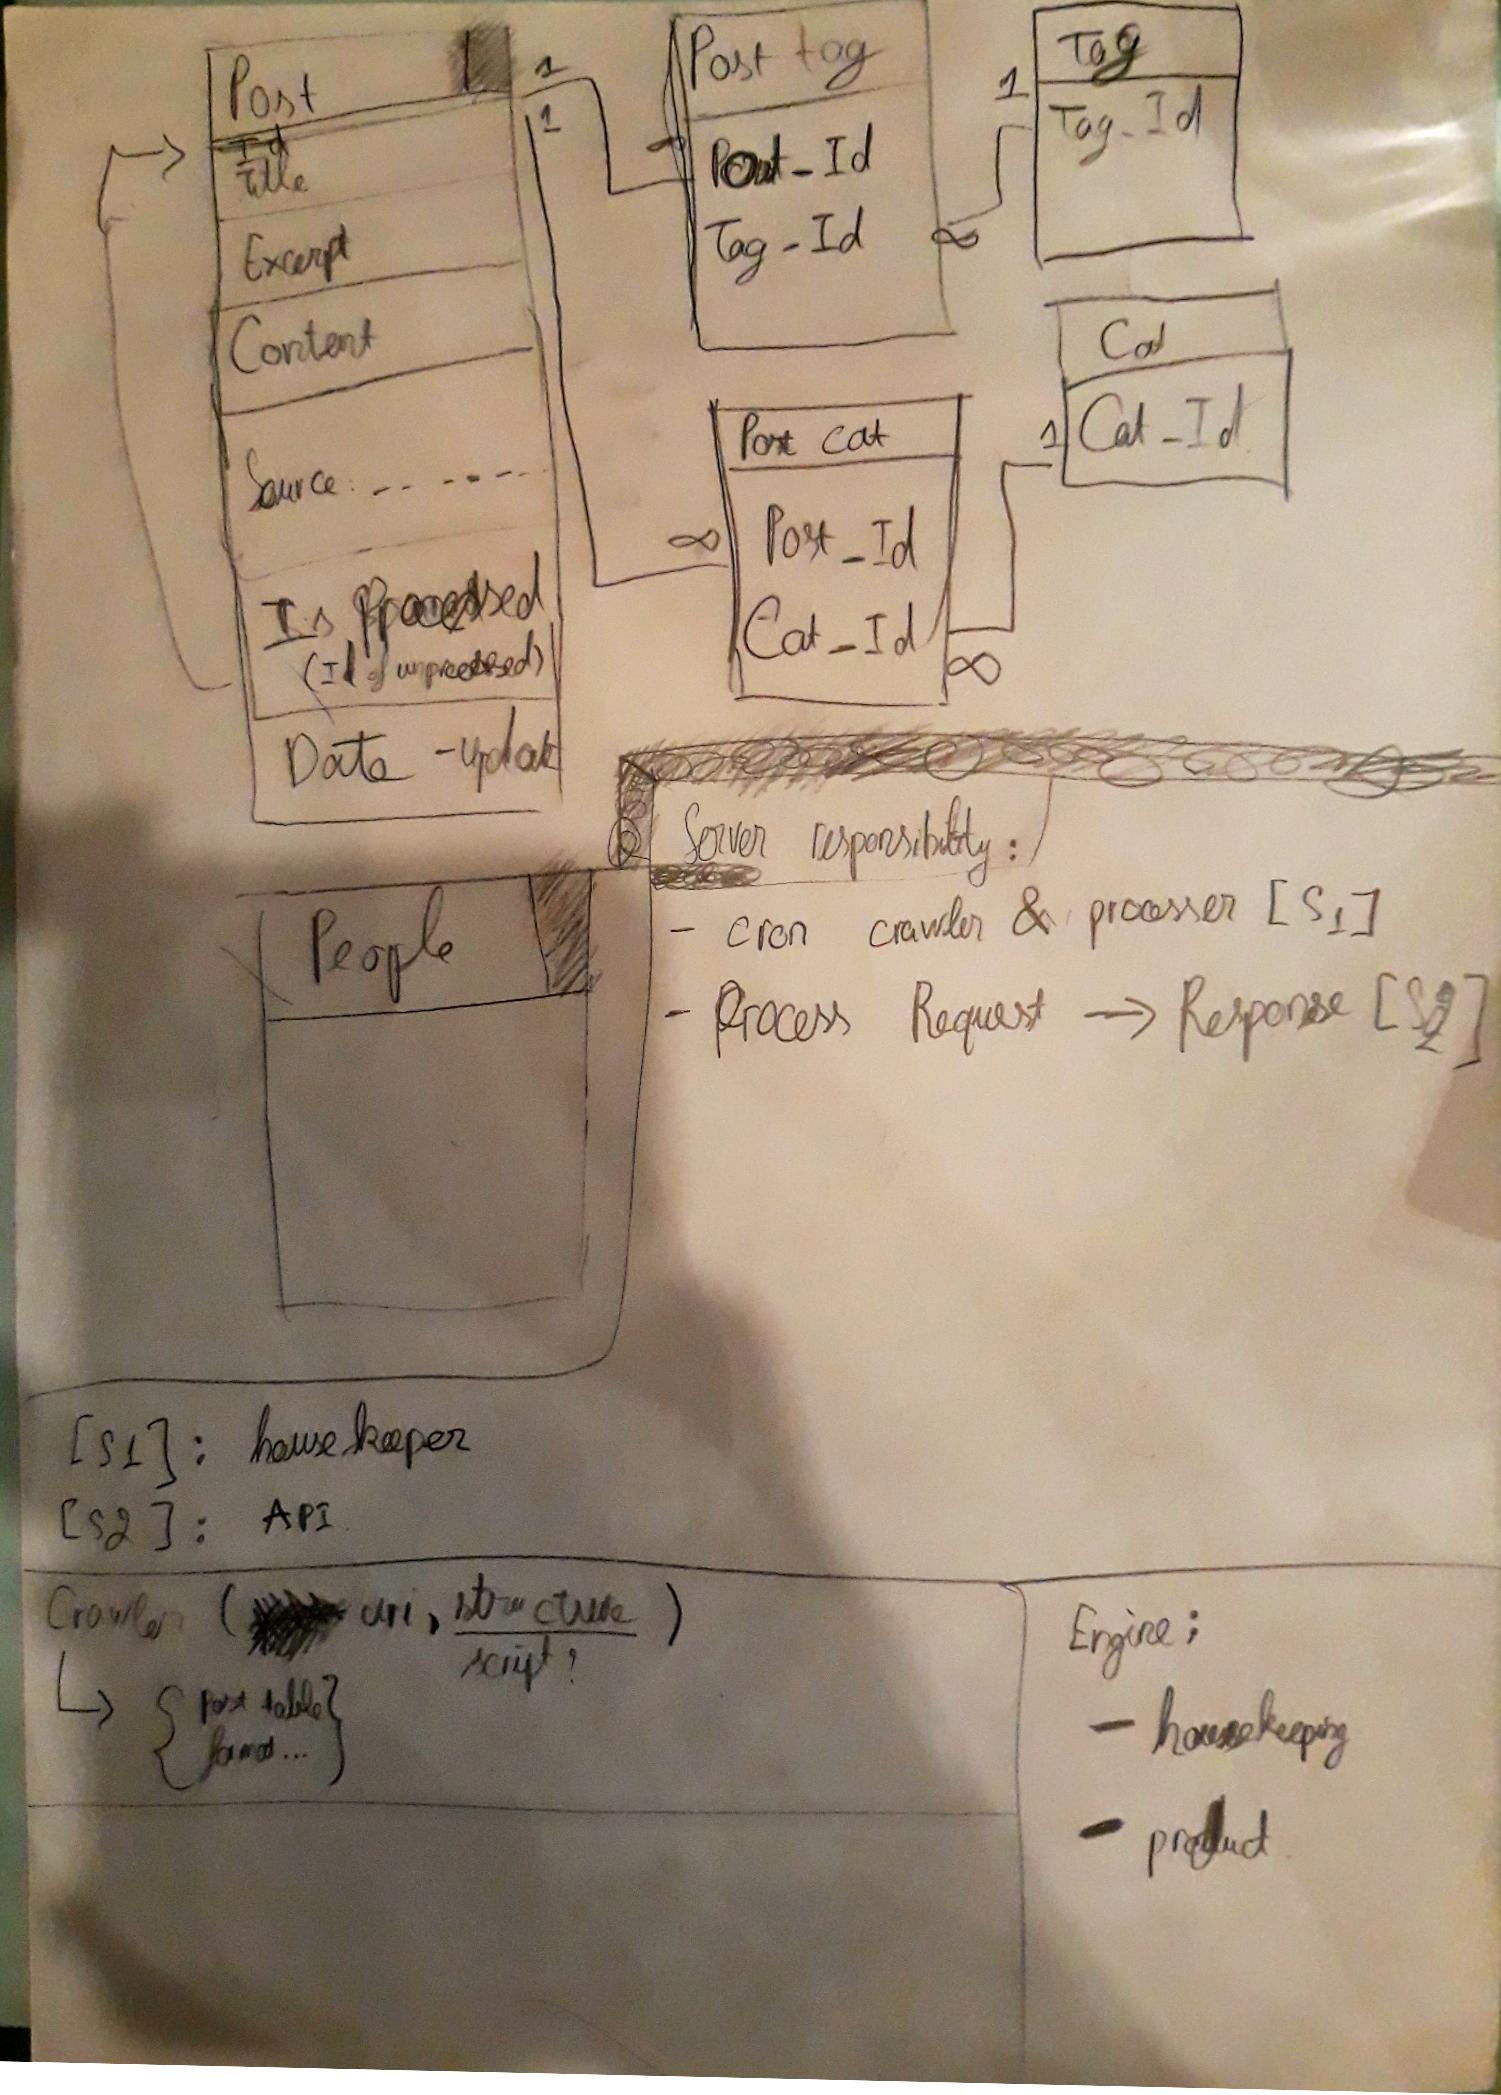 Post
Id
Title
Excerpt
Content
Source: ... ...
Is Processed
(Id of unprocessed)
Date - update
1
1
Post tag
Post_Id
Tag_Id
∞
1
Tag
Tag_Id
Post cat
∞
Post_Id
Cat_Id
∞
1
Cat
Cat_Id
People
Server responsibility:
- cron crawler & processer [S1]
- Process Request → Response [S2]
[S1]: housekeeper
[S2]: API
Crawler ( uri, structure )
script?
{ post table }
format...
Engine:
- housekeeping
- product